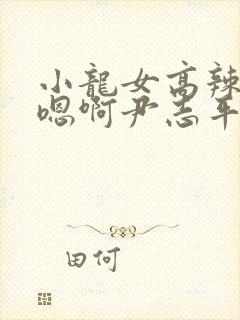 小龍女高辣
嗯啊尹志平
田何